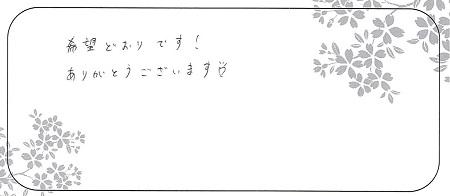 希望どおりです!
ありがとうございます♡